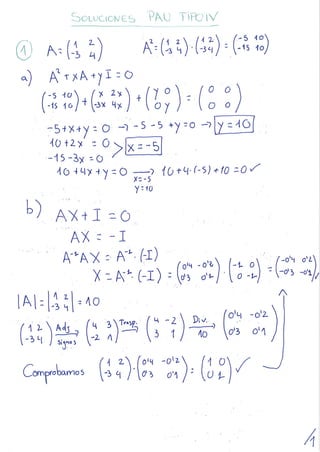 SOLUCIONES PAU TIPO IV
① A = (1 2 / -3 4)    A² = (1 2 / -3 4) · (1 2 / -3 4) = (-5 10 / -15 10)
a) A² + xA + yI = 0
(-5 10 / -15 10) + (x 2x / -3x 4x) + (y 0 / 0 y) = (0 0 / 0 0)
-5+x+y = 0 → -5 -5 +y = 0 → y = 10
10+2x = 0
-15-3x = 0 > x = -5
10+4x+y = 0 → 10+4·(-5)+10 = 0 ✓
x=-5
y=10
b) AX + I = 0
AX = -I
A⁻¹AX = A⁻¹·(-I)
X = A⁻¹·(-I) = (0'4 -0'2 / 0'3 0'1) · (-1 0 / 0 -1) = (-0'4 0'2 / -0'3 -0'1)
|A| = |1 2 / -3 4| = 10
(1 2 / -3 4) Adj signos → (4 3 / -2 1) Trasp. → (4 -2 / 3 1) Div. 10 → (0'4 -0'2 / 0'3 0'1)
Comprobamos (1 2 / -3 4) · (0'4 -0'2 / 0'3 0'1) = (1 0 / 0 1) ✓
/1